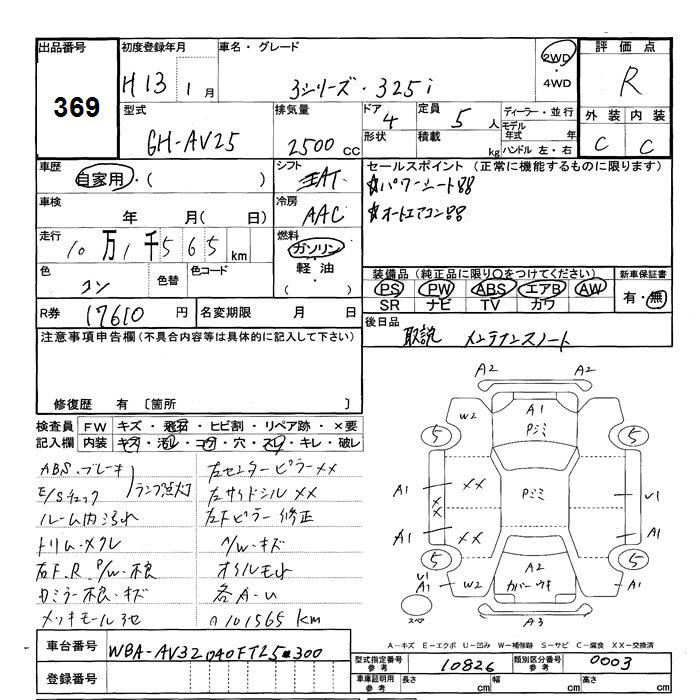 出品番号
369
初度登録年月
H13 1 月
車名・グレード
3シリーズ・325i
2WD
・
4WD
評 価 点
R
型式
GH-AV25
排気量
2500 cc
ドア
4
形状
定員
5 人
積載
kg
ディーラー・並行
モデル
年式 年
ハンドル 左・右
外 装 内 装
C C
車歴
自家用・( )
シフト
AT
セールスポイント (正常に機能するものに限ります)
☆パワーシート
☆オートエアコン
車検
年 月( 日)
冷房
AAC
走行
10 万 1 千 5 6 5 km
燃料
ガソリン
・
軽 油
( )
色
コン
色替
色コード
装備品 (純正品に限り○をつけてください)
PS PW ABS エアB AW
SR ナビ TV カワ
新車保証書
有・無
R券
17610 円
名変期限 月 日
後日品
取説 メンテナンスノート
注意事項申告欄 (不具合内容等は具体的に記入して下さい)
修復歴 有 〔箇所 〕
検査員
記入欄
FW キズ・飛石・ヒビ割・リペア跡・×要
内装 キズ・汚レ・コゲ・穴・スレ・キレ・破レ
ABS・ブレーキ
E/Sチェック
ランプ点灯
ルーム内汚れ
トリム・メクレ
右F.R.P/W・不良
Dミラー不良・キズ
メッキモール
左センターピラーXX
左サイドシルXX
左Fピラー修正
A/W・キズ
オイルモレ
各A・U
Ⓐ101565 km
A2 A2
W2 A1
Pシミ
5 5
A1 XX
Pシミ
U1
XX
A1 XX A1
5 5
U1
A1 W2 A2
カバーウキ
A1
スペア
A3
A-キズ E-エクボ U-凹み W-補修跡 S-サビ C-腐食 XX-交換済
車台番号
WBA-AV32040FT25300
登録番号
型式指定番号
参考
10826
類別区分番号
参考
0003
車庫証明用
参考
長さ cm 幅 cm 高さ cm